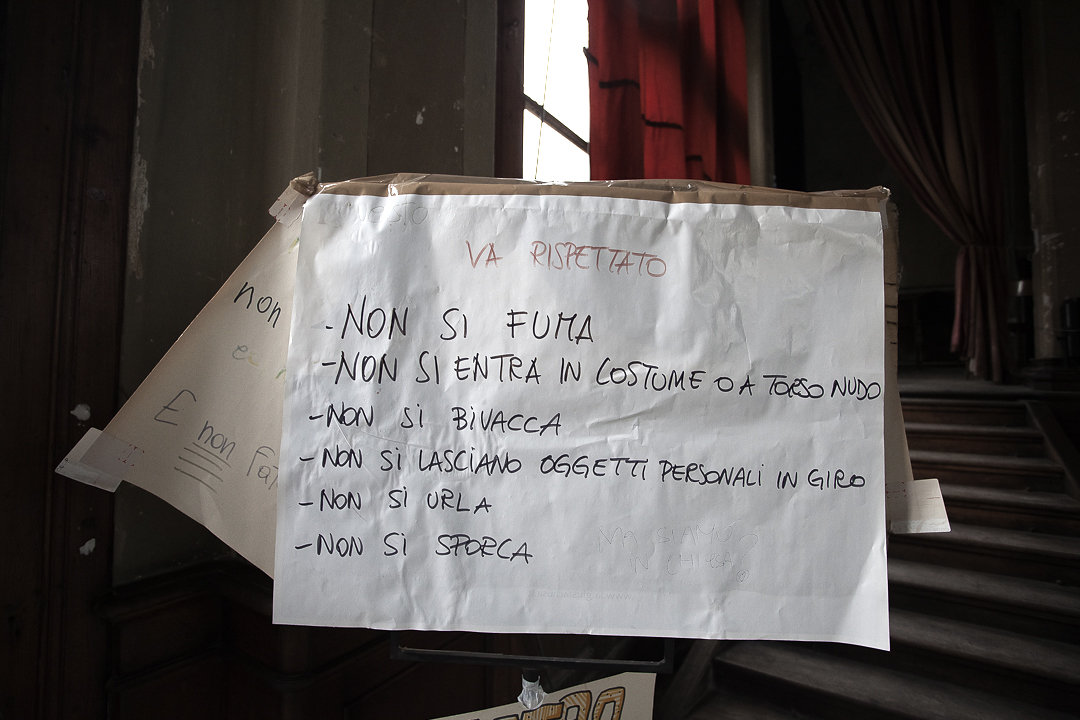 VA RISPETTATO
- NON SI FUMA
- NON SI ENTRA IN COSTUME O A TORSO NUDO
- NON SI BIVACCA
- NON SI LASCIANO OGGETTI PERSONALI IN GIRO
- NON SI URLA
- NON SI SPORCA
MA SIAMO
IN CHIESA?
non
E non fat